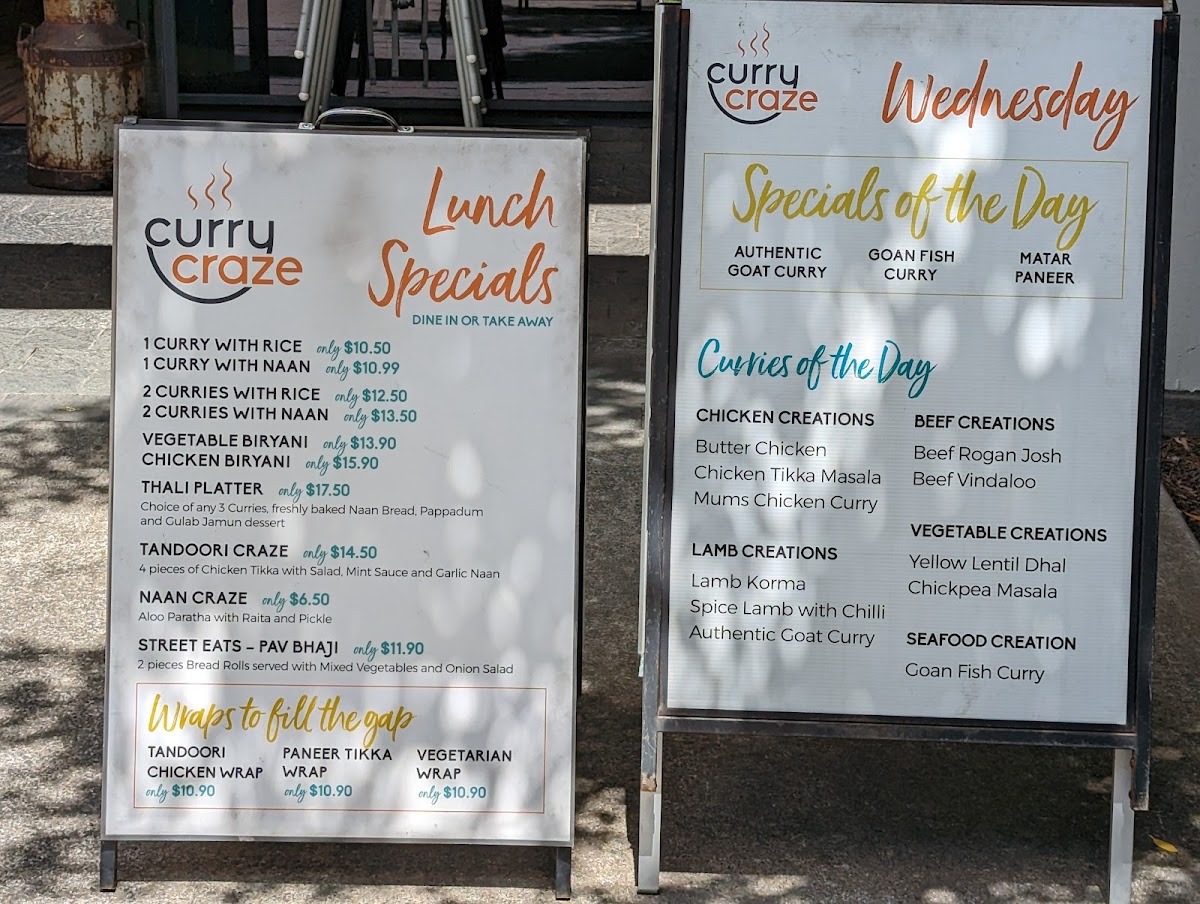 curry
craze
Lunch
Specials
DINE IN OR TAKE AWAY
1 CURRY WITH RICE only $10.50
1 CURRY WITH NAAN only $10.99
2 CURRIES WITH RICE only $12.50
2 CURRIES WITH NAAN only $13.50
VEGETABLE BIRYANI only $13.90
CHICKEN BIRYANI only $15.90
THALI PLATTER only $17.50
Choice of any 3 Curries, freshly baked Naan Bread, Pappadum
and Gulab Jamun dessert
TANDOORI CRAZE only $14.50
4 pieces of Chicken Tikka with Salad, Mint Sauce and Garlic Naan
NAAN CRAZE only $6.50
Aloo Paratha with Raita and Pickle
STREET EATS – PAV BHAJI only $11.90
2 pieces Bread Rolls served with Mixed Vegetables and Onion Salad
Wraps to fill the gap
TANDOORI
CHICKEN WRAP
only $10.90
PANEER TIKKA
WRAP
only $10.90
VEGETARIAN
WRAP
only $10.90
curry
craze
Wednesday
Specials of the Day
AUTHENTIC
GOAT CURRY
GOAN FISH
CURRY
MATAR
PANEER
Curries of the Day
CHICKEN CREATIONS
Butter Chicken
Chicken Tikka Masala
Mums Chicken Curry
LAMB CREATIONS
Lamb Korma
Spice Lamb with Chilli
Authentic Goat Curry
BEEF CREATIONS
Beef Rogan Josh
Beef Vindaloo
VEGETABLE CREATIONS
Yellow Lentil Dhal
Chickpea Masala
SEAFOOD CREATION
Goan Fish Curry